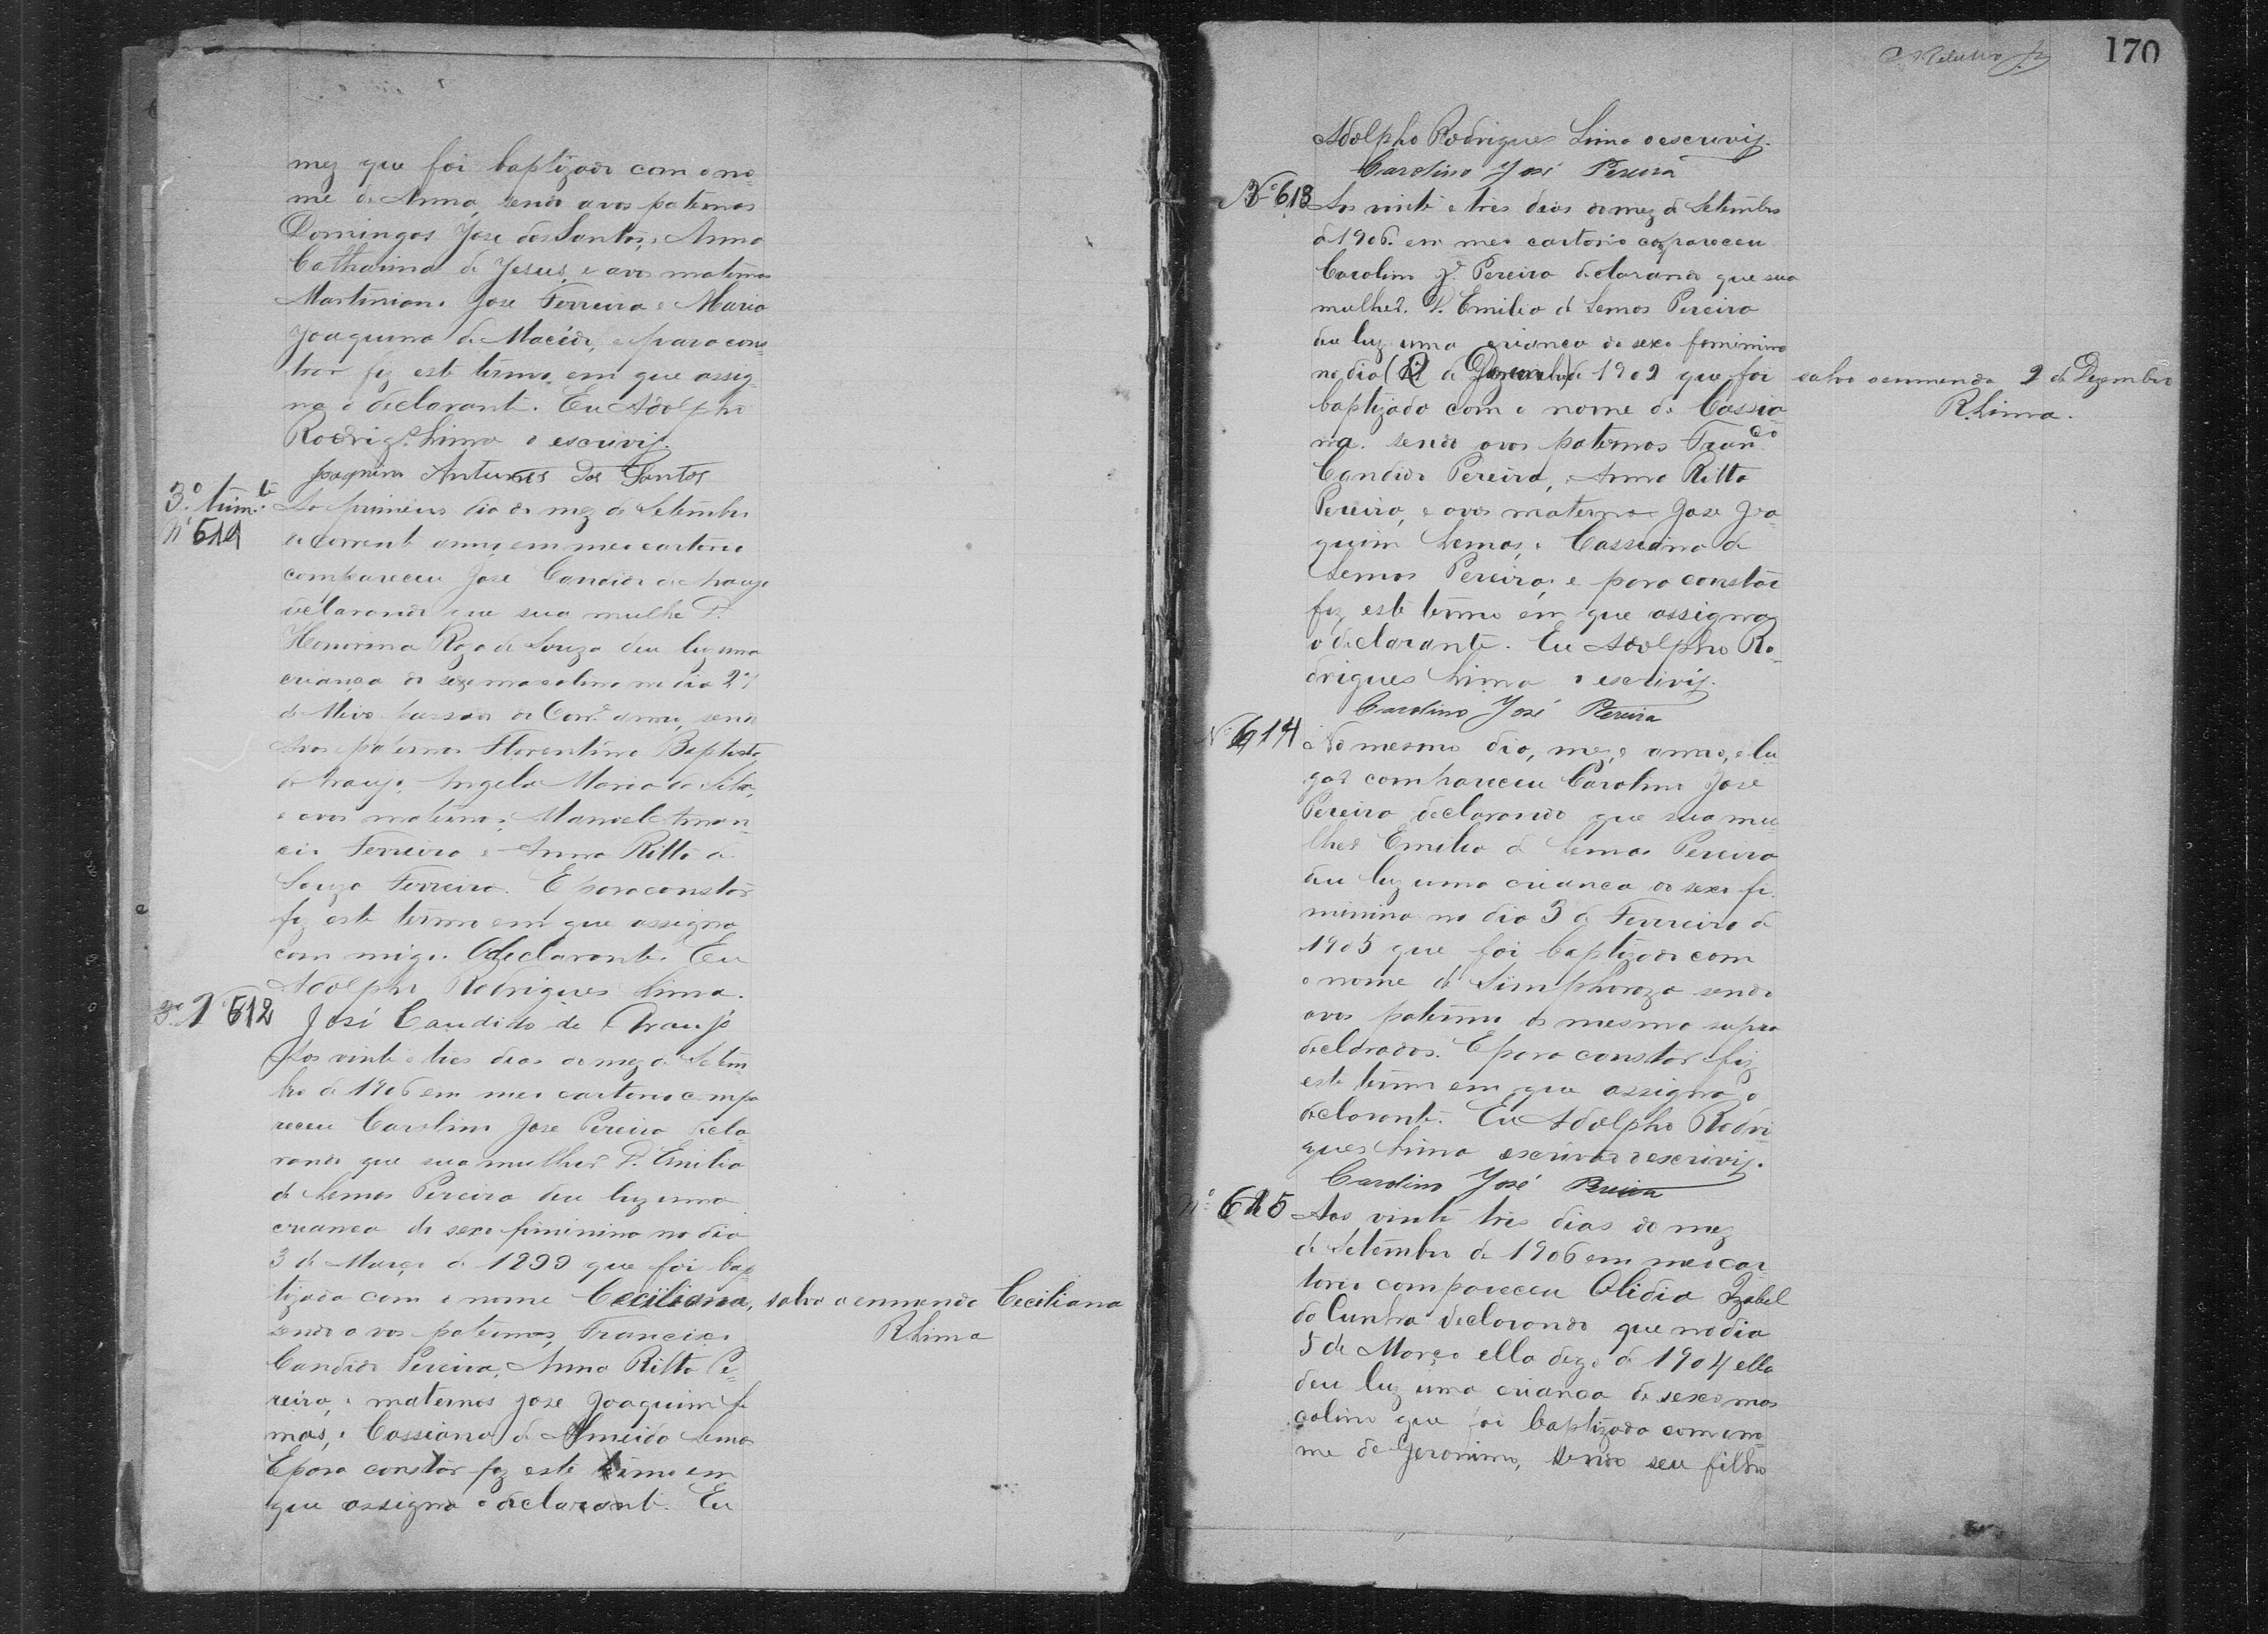 mez que foi baptizado com o no-
me de Anna, sendo avos paternos
Domingos Jose dos Santos, e Anna
Catharina de Jesus, e avos maternos
Martiniano Jose Ferreira e Maria
Joaquina de Macedo, e para cons-
tar fiz este termo em que assig-
na o declarante. Eu Adolpho
Rodrigs. Lima o escrivij.
Joaquim Antunes dos Santos
3º trim.te Ao primeiro dia do mez de Setembro
Nº 611 do corrente anno em meo cartorio
compareceu Jose Candido de Araujo
declarando que sua mulhe D.
Honorina Roza de Souza deu luz uma
criança do sexo mascolino no dia
de passado do Corre. anno, sendo
Avos paternos Florentino Baptista
de Araujo, Angela Maria da Silva,
e avos maternos Manoel Aman-
cio Ferreira e Anna Ritta de
Souza Ferreira. E para constar
fiz este termo em que assigna
com migo O declarante. Eu
Adolpho Rodrigues Lima.
3º Nº 612 José Candido de Araujo
Aos vinte e tres dias do mez de Setem-
bro de 1906 em meo cartorio compa-
receu Carolino Jose Pereira decla-
rando que sua mulher D. Emilia
de Lemos Pereira deu luz uma
crianca do sexo fiminino no dia
3 de Março de 1899 que foi bap-
tizada com o nome Ceciliana, salvo a emmenda Ceciliana
sendo avos paternos, Francisco RLima
Candido Pereira, Anna Ritta Pe-
reira, e maternos Jose Joaquim Le-
mos, e Cassiana de Almeida Lemos
E para constar fiz este termo em
que assigna o declarante. Eu
170
Adolpho Rodrigues Lima o escrivij.
Carolino José Pereira
Nº 613 Aos vinte e tres dias do mez de Setembro
de 1906. em meo cartorio compareceu
Carolino Je. Pereira declarando que sua
mulher. D. Emilia de Lemos Pereira
deu luz uma crianca do sexo feminino
no dia (2 de Dezembro) de 1902 que foi salvo a emmenda 2 de Dezembro
baptizado com o nome de Cassia- R.Lima.
na. sendo avos paternos Franco.
Candido Pereira, Anna Ritta
Pereira, e avos maternos Jose Joa-
quim Lemos, e Cassiana de
Lemos Pereira, e para constar
fiz este termo em que assigna
o declarante. Eu Adolpho Ro-
drigues Lima o escrivij.
Carolino José Pereira
Nº 614 No mesmo dia, mez, e anno, e lu
gar compareceu Carolino Jose
Pereira declarando que sua mu-
lher Emilia de Lemos Pereira
deu luz uma crianca do sexo fe-
minino no dia 3 de Fevereiro de
1905 que foi baptizado com
o nome de Simphoroza sendo
avos paternos os mesmo supra
declarados. E para constar fiz
este termo em que assigna o
declarante. Eu Adolpho Rodri
gues Lima escrivão o escrivij.
Carolino José Pereira
Nº 615 Aos vinte tres dias do mez
de Setembro de 1906 em meo car-
torio compareceu Olidia Izabel
da Cunha declarando que no dia
5 de Março ella digo de 1904 ella
deu luz uma crianca de sexo mas
colino que foi baptizado com o no-
me de Geronimo, sendo seu filho